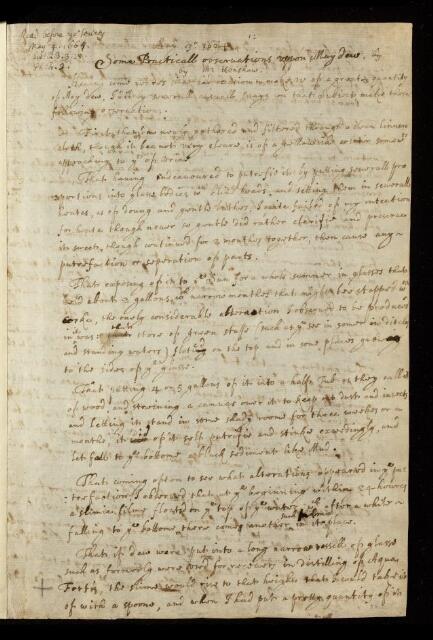 Read before ye Society
May 4. 1664
May 4. 1664
Some Practicall observations upon May dew. by
Mr Henshaw.
of May dew,
following operations.
That dew newly gathered and filtered through a clean linnen
cloth, though it bee not very cleare, is of a yellowish colour somewt
approaching to yt of Urine.
That having endeavoured to putrefie it by putting severall pro
portions into glasse bodies wth blind heads, and setting them in severall
heates, as of doung and gentle bathes, I quite failed of my intention
for heat though never so gentle did rather clarifie and preserve
its sweets, though continued for 2 months together, then cause any
putrefaction or seperation of parts.
That exposing of it to ye Sun for a whole summer in glasses that
held about 2 gallons, wth narrow mouthes that might bee stopped wth
corke, the onely considerable alteration I observed to be produced
in it was store of green stuffe (such as ye see in somer in ditches
and standing waters) floted on the top and in some places
to the sides of ye glasse.
That putting 4 or 5 gallons of it into a halfe Tub as they call it
of wood and straining a canvas over it to keep out dust and insects
and letting it stand in some shady roome for three weekes or a
month, it did of it selfe putrefie and stinke exceedingly, and
let fall to ye bottome a black sediment like Mud.
That coming often to see what alterations appeared in ye pu
trefaction, I observed that at ye beginning within 24 howers
a slimie filme floted on ye top of ye water, wch after a while
falling to ye bottome, there came another such filme in its place.
That if dew were put into a long narrow vessell of glasse
such as formerly were used for receivers in distilling of Aqua
Fortis, the slime would rise to that height that I could take it
of with a spoone, and when I had put a pretty quantity of it